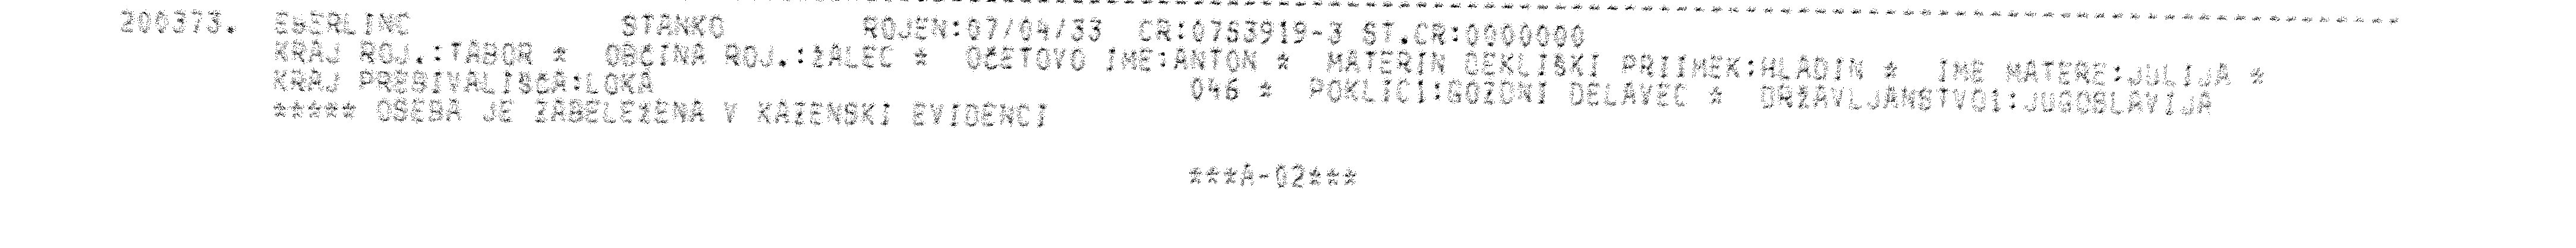 200373. EBERLINC STANKO ROJEN:07/04/33 CR:0753919-3 ST.CR:0000000
KRAJ ROJ.:TABOR * OBČINA ROJ.:ŽALEC * OČETOVO IME:ANTON * MATERIN DEKLIŠKI PRIIMEK:HLADIN * IME MATERE:JULIJA *
KRAJ PREBIVALIŠČA:LOKA 046 * POKLICI:GOZDNI DELAVEC * DRŽAVLJANSTVO1:JUGOSLAVIJA
***** OSEBA JE ZABELEŽENA V KAZENSKI EVIDENCI
***A-02***